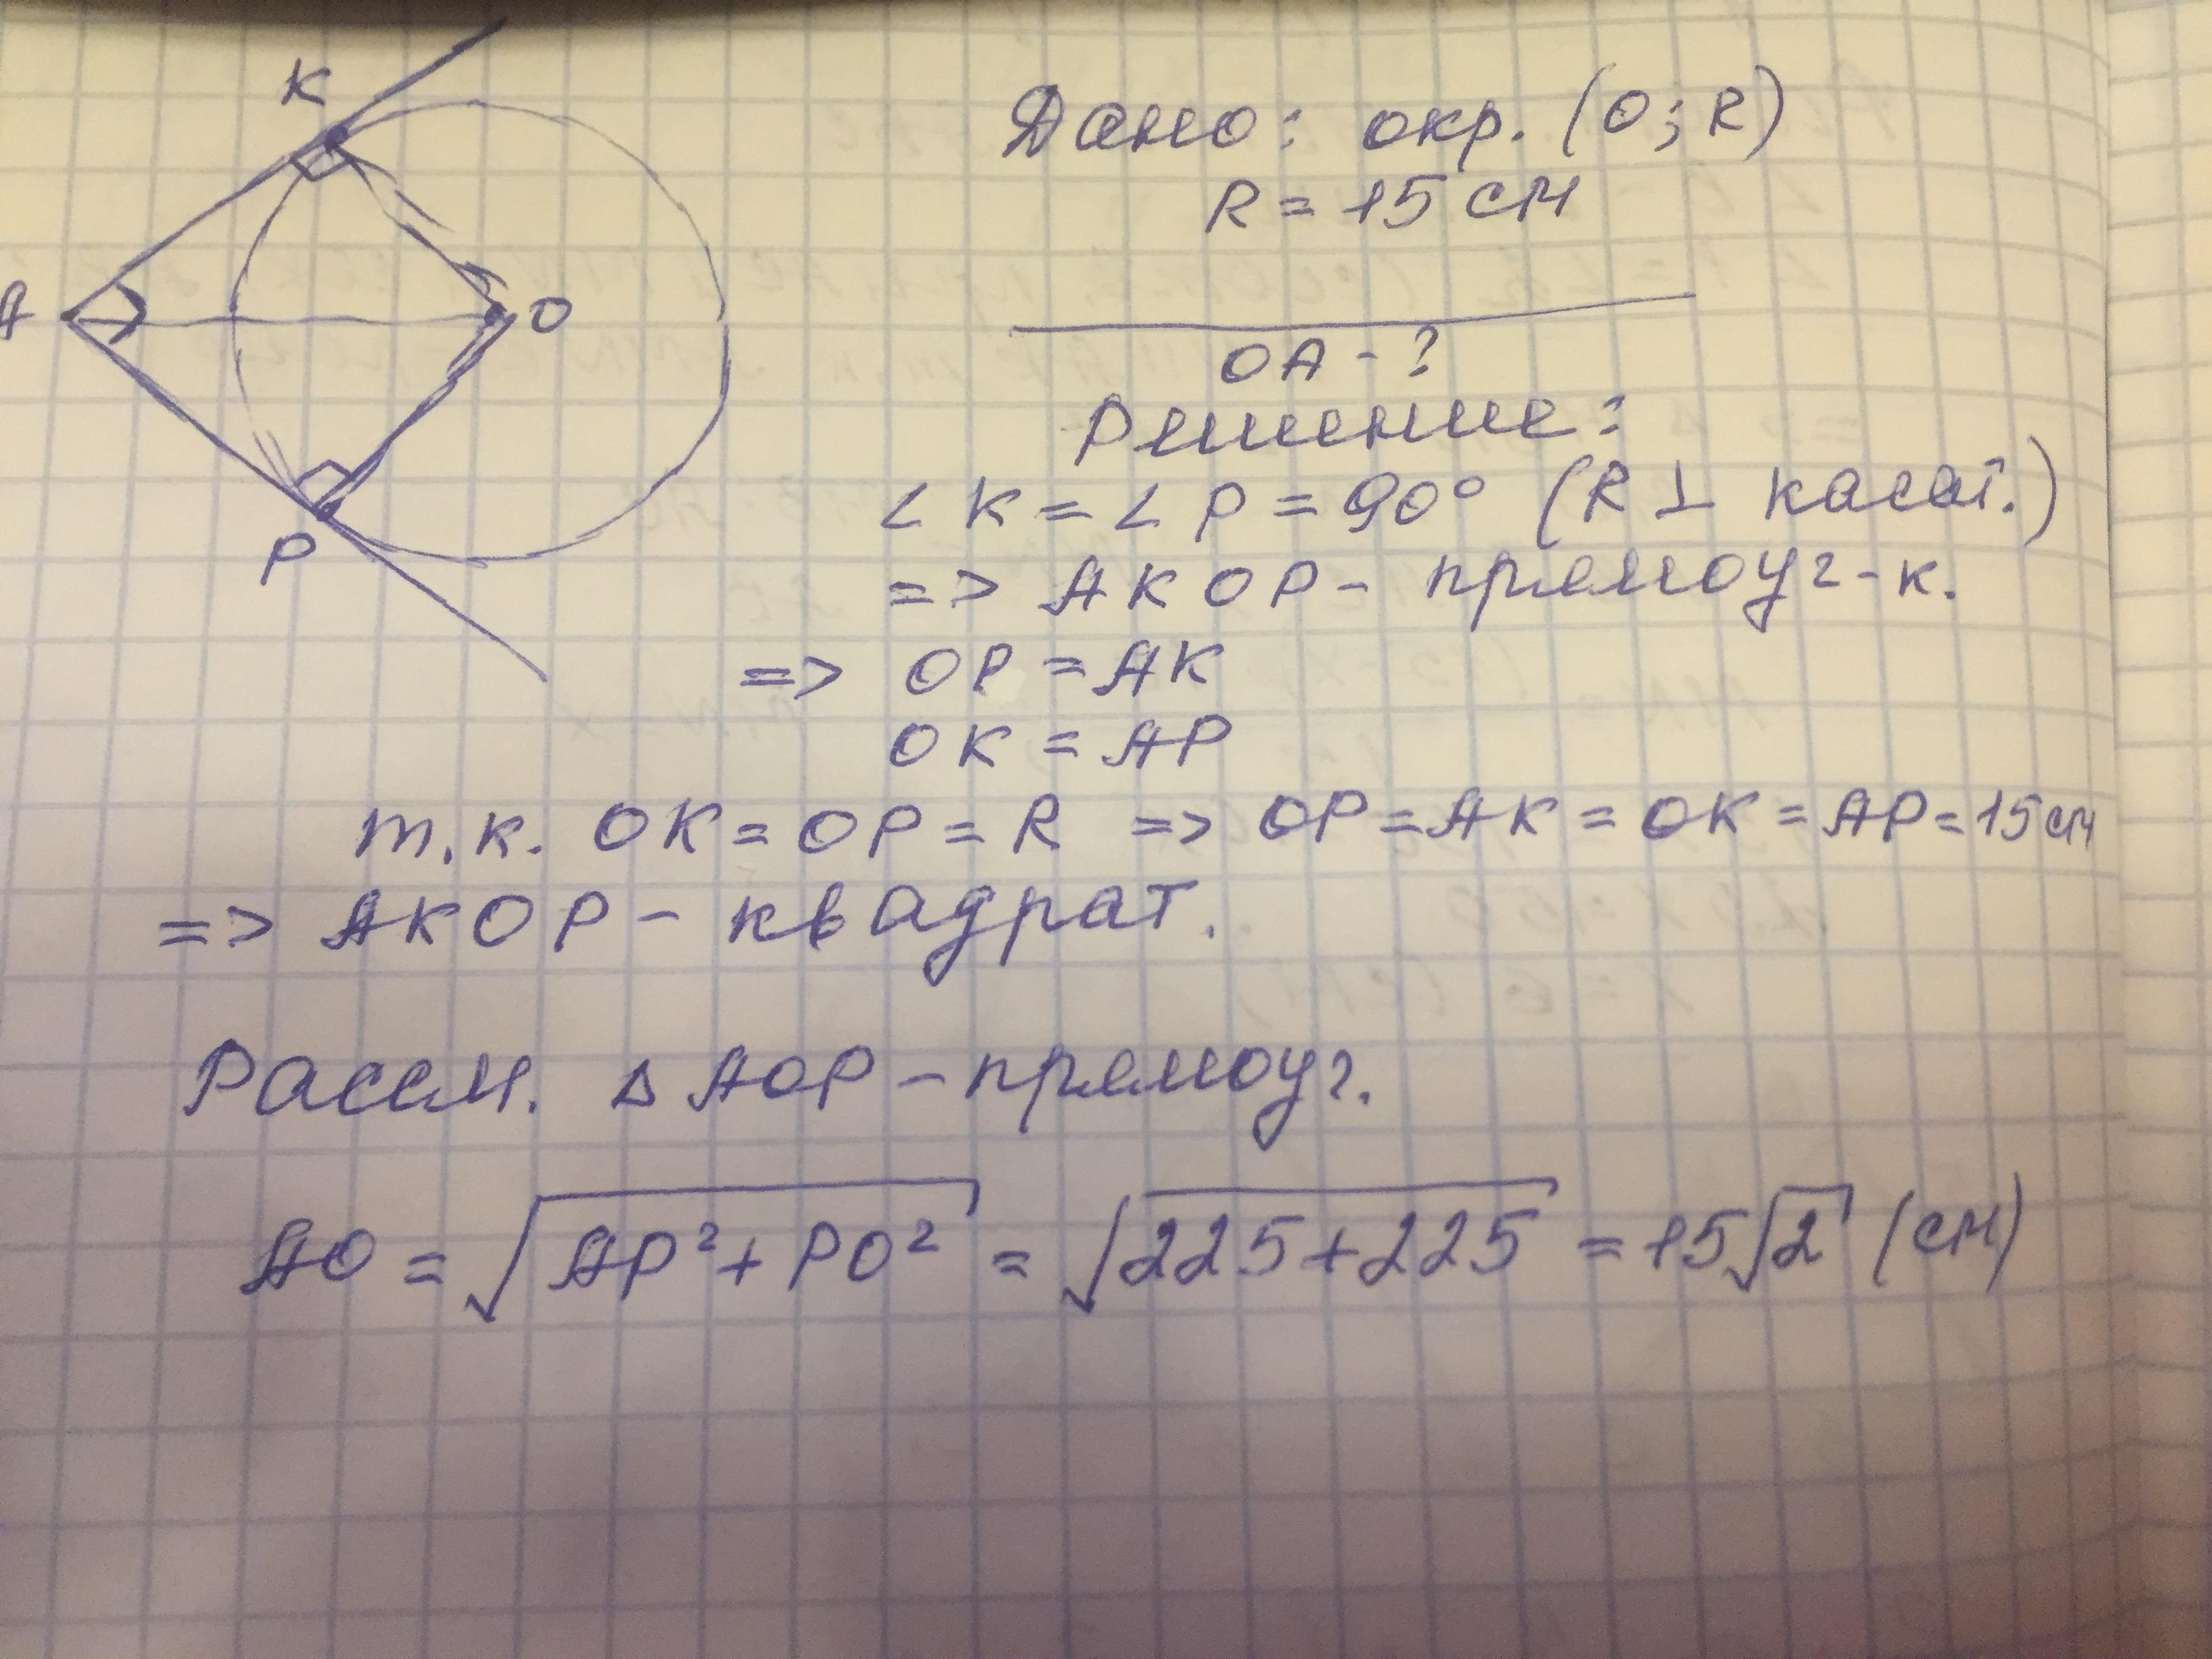 K
A
O
P
Дано: окр. (O; R)
R = 15 см
OA - ?
Решение:
∠ K = ∠ P = 90° (R ⊥ касат.)
=> AKOP - прямоуг-к.
=> OP = AK
OK = AP
т.к. OK = OP = R => OP = AK = OK = AP = 15 см
=> AKOP - квадрат.
Рассм. △ AOP - прямоуг.
AO = √AP² + PO² = √225 + 225 = 15√2 (см)